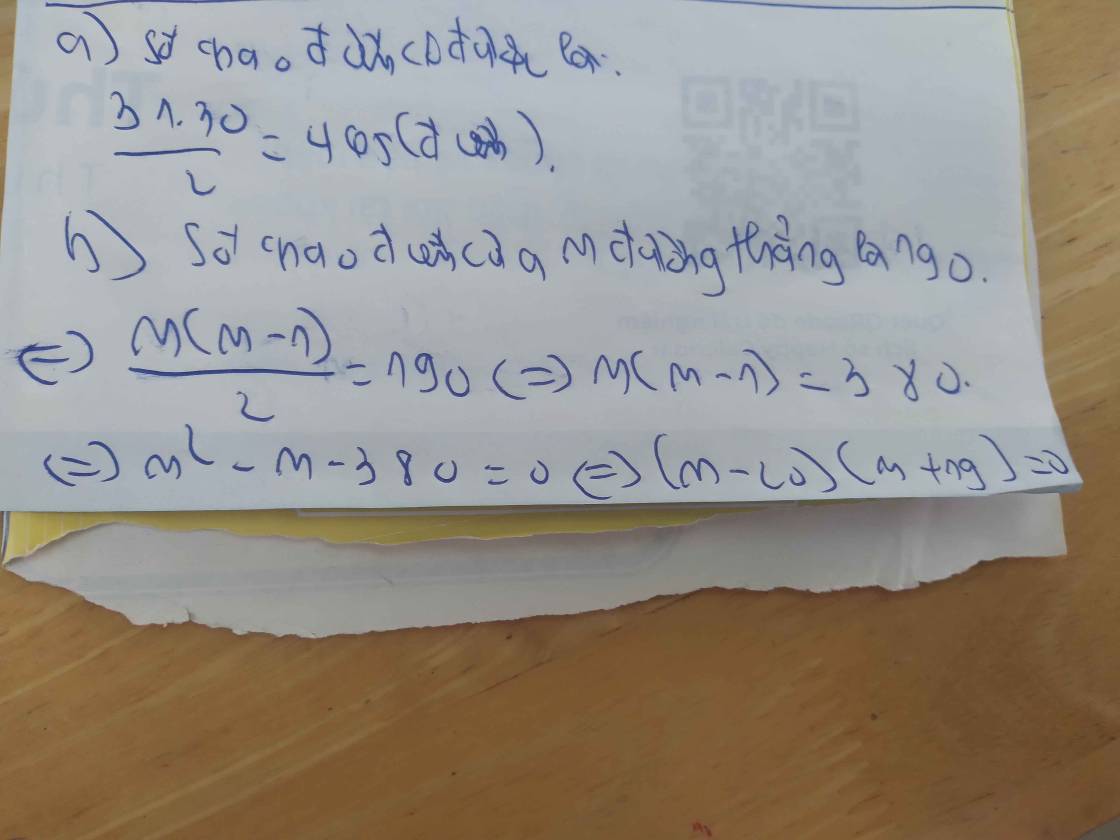 a) Số giao điểm có được là:
31.30 / 2 = 465 (điểm).
b) Số giao điểm của n đường thẳng là 190.
<=> n(n-1) / 2 = 190 <=> n(n-1) = 380.
<=> n² - n - 380 = 0 <=> (n-20)(n+19) = 0